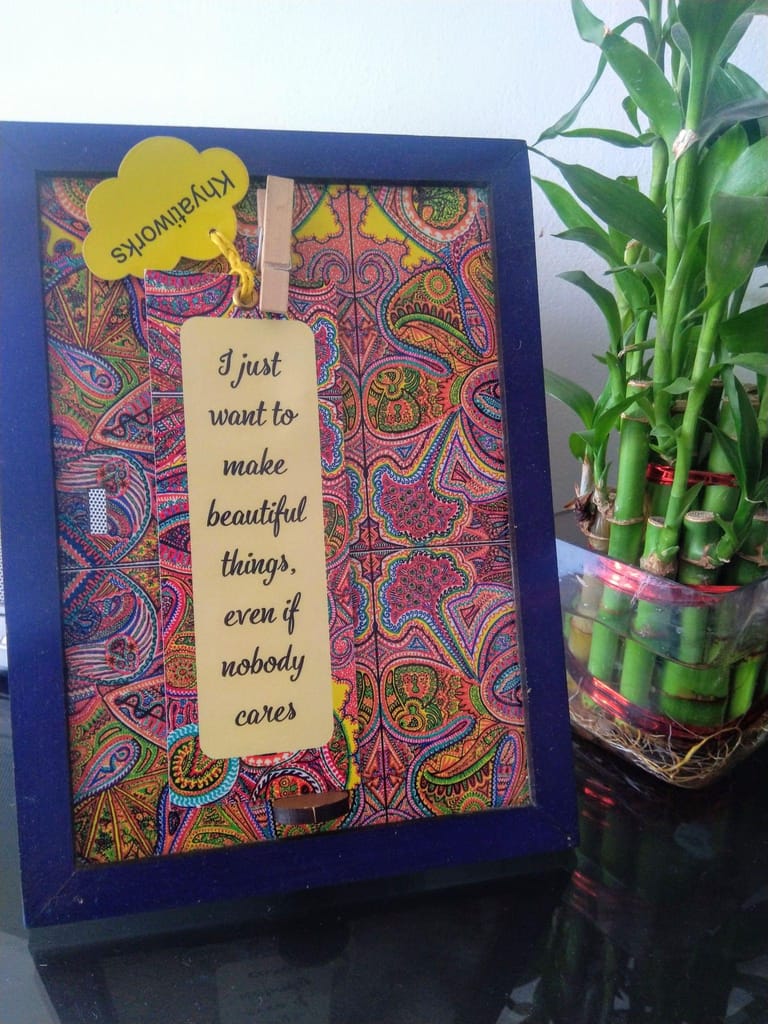 Khyatiworks
I just
want to
make
beautiful
things,
even if
nobody
cares